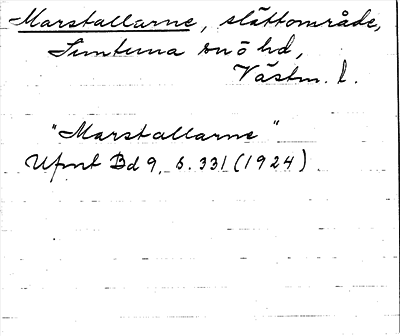 Marstallarne, slåttområde,
Simtuna snö hd,
Västm. l.
"Marstallarne"
Ufmt Bd 9, s. 331 (1924)